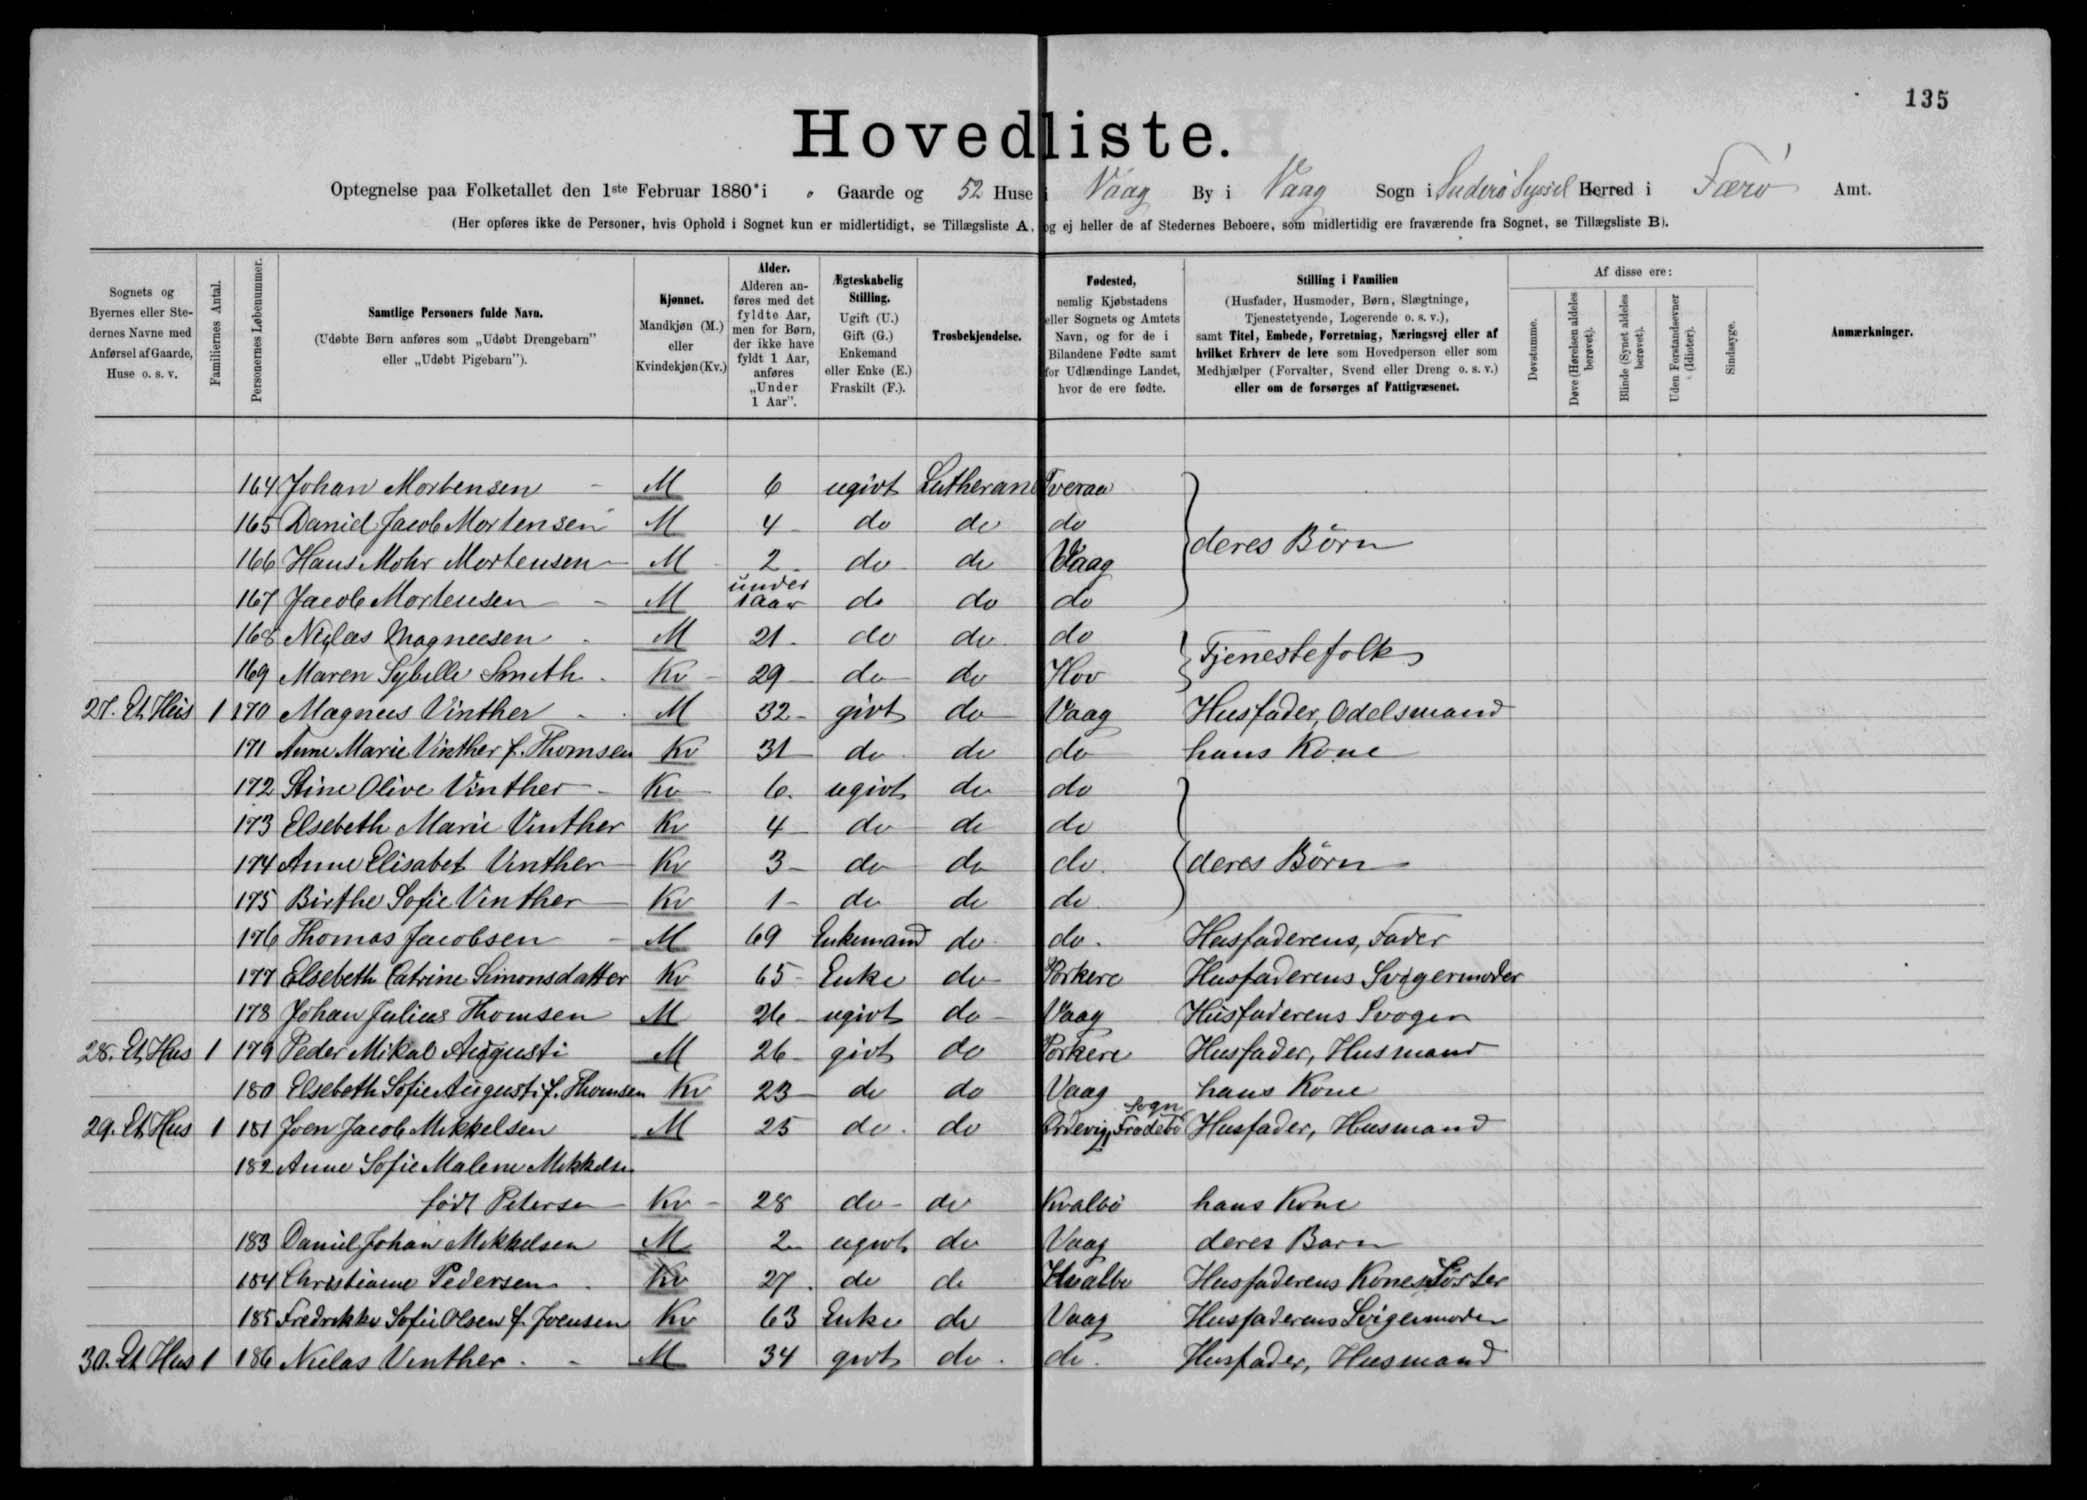 135
Hovedliste.
Optegnelse paa Folketallet den 1ste Februar 1880 i " Gaarde og 52 Huse i Vaag By i Vaag Sogn i Suderö Syssel Herred i Færö Amt.
(Her opføres ikke de Personer, hvis Ophold i Sognet kun er midlertidigt, se Tillægsliste A, og ej heller de af Stedernes Beboere, som midlertidig ere fraværende fra Sognet, se Tillægsliste B).
Sognets og Byernes eller Stedernes Navne med Anførsel af Gaarde, Huse o. s. v.
Familiernes Antal.
Personernes Løbenummer.
Samtlige Personers fulde Navn.
(Udøbte Børn anføres som „Udøbt Drengebarn" eller „Udøbt Pigebarn").
Kjønnet.
Mandkjøn (M.) eller Kvindekjøn (Kv.)
Alder.
Alderen anføres med det fyldte Aar, men for Børn, der ikke have fyldt 1 Aar, anføres „Under 1 Aar".
Ægteskabelig Stilling.
Ugift (U.) Gift (G.) Enkemand eller Enke (E.) Fraskilt (F.).
Trosbekjendelse.
Fødested,
nemlig Kjøbstadens eller Sognets og Amtets Navn, og for de i Bilandene Fødte samt for Udlændinge Landet, hvor de ere fødte.
Stilling i Familien
(Husfader, Husmoder, Børn, Slægtninge, Tjenestetyende, Logerende o. s. v.),
samt Titel, Embede, Forretning, Næringsvej eller af hvilket Erhverv de leve som Hovedperson eller som Medhjælper (Forvalter, Svend eller Dreng o. s. v.) eller om de forsørges af Fattigvæsenet.
Af disse ere:
Døvstumme.
Døve (Hørelsen aldeles berøvet).
Blinde (Synet aldeles berøvet).
Uden Forstandsevner (Idioter).
Sindssyge.
Anmærkninger.
164 Johan Mortensen M 6 ugivt Lutheran Tveraa
165 Daniel Jacob Mortensen M 4 do do do deres Börn
166 Hans Mohr Mortensen M 2 do do Vaag
167 Jacob Mortensen M under 1 aar do do do
168 Niclas Magnusen M 21 do do do Tjenestefolk
169 Maren Sybille Smith Kv 29 do do Hov
27. Et Hus 1 170 Magnus Vinther M 32 givt do Vaag Husfader, Odelsmand
171 Anne Marie Vinther f. Thomsen Kv 31 do do do hans Kone
172 Stine Olive Vinther Kv 6 ugivt do do
173 Elsebeth Marie Vinther Kv 4 do do do
174 Anne Elisabet Vinther Kv 3 do do do deres Börn
175 Birthe Sofie Vinther Kv 1 do do do
176 Thomas Jacobsen M 69 Enkemand do do Husfaderens Fader
177 Elsebeth Catrine Simonsdatter Kv 65 Enke do Porkere Husfaderens Svigermoder
178 Johan Julius Thomsen M 26 ugivt do Vaag Husfaderens Svoger
28. Et Hus 1 179 Peder Mikal Augusti M 26 givt do Porkere Husfader, Husmand
180 Elsebeth Sofie Augusti f. Thomsen Kv 23 do do Vaag hans Kone
29. Et Hus 1 181 Joen Jacob Mikkelsen M 25 do do Ordevig, Frodebö Sogn Husfader, Husmand
182 Anne Sofie Malene Mikkelsen
født Petersen Kv 28 do do Kvalbö hans Kone
183 Daniel Johan Mikkelsen M 2 ugivt do Vaag deres Barn
184 Christianne Pedersen Kv 27 do do Hvalbo Husfaderens Kones Söster
185 Fredrikke Sofie Olsen f. Joensen Kv 63 Enke do Vaag Husfaderens Svigermoder
30. Et Hus 1 186 Niclas Vinther M 34 givt do do Husfader, Husmand